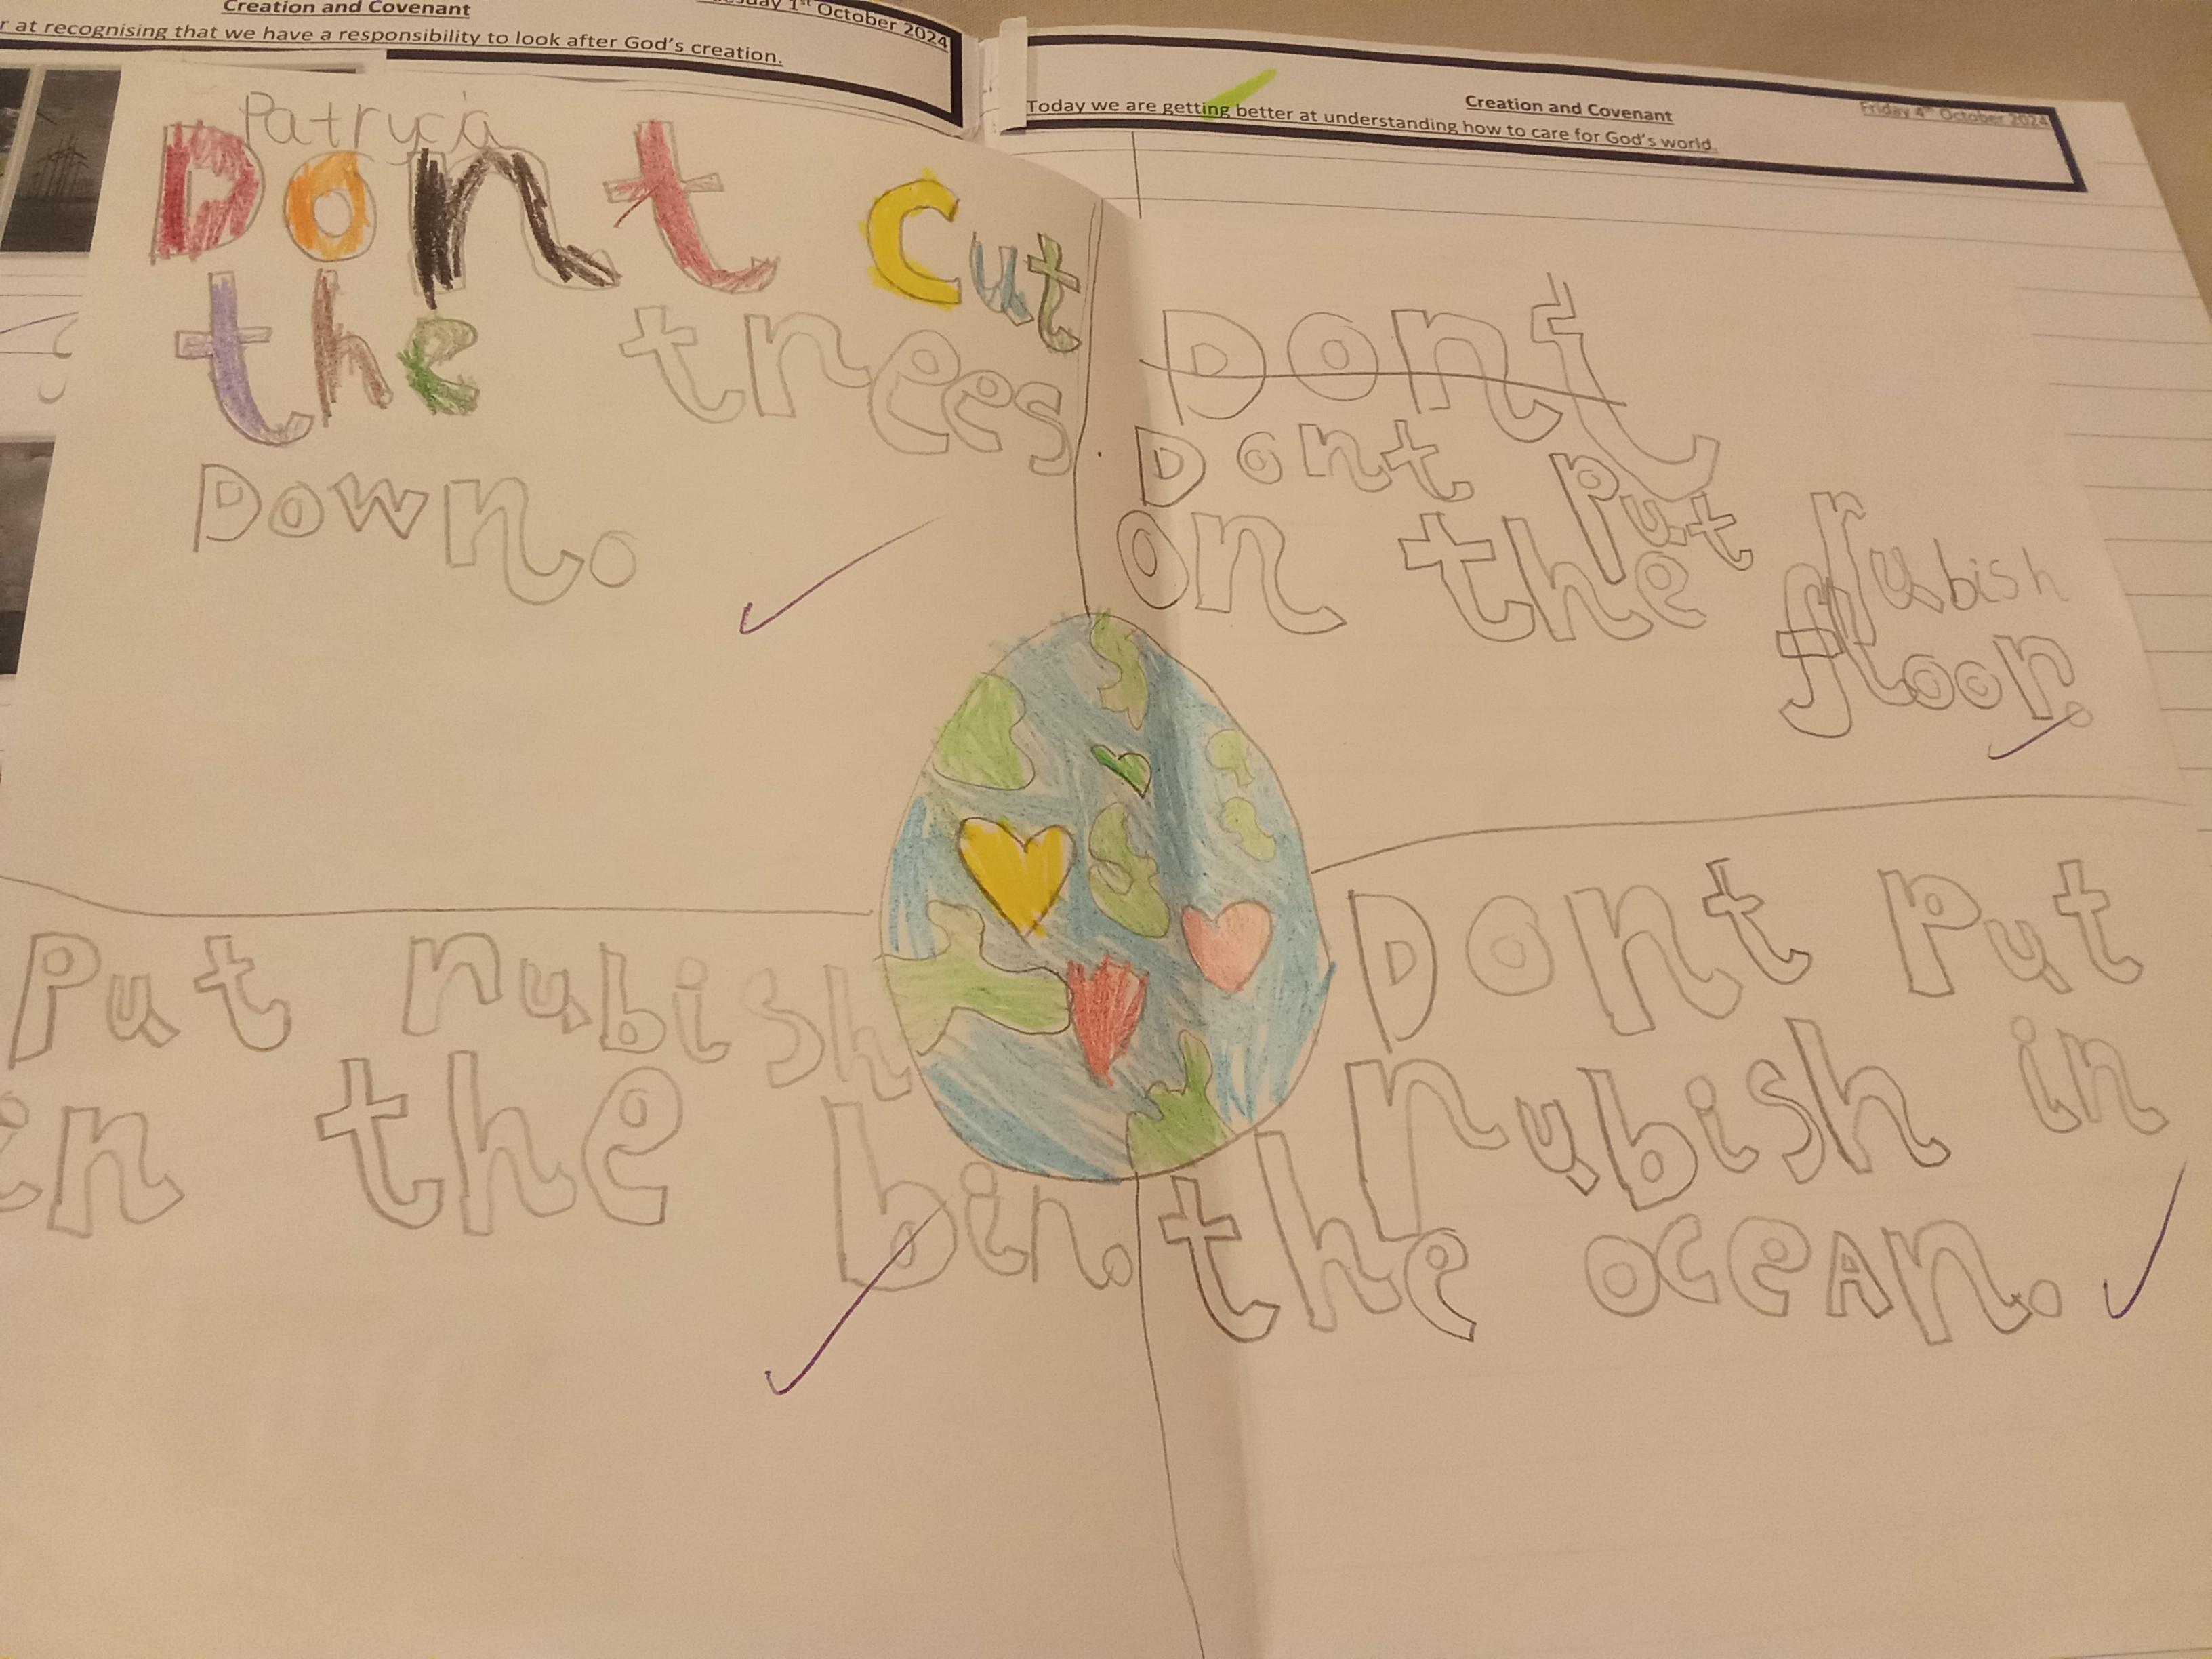 Creation and Covenant
r at recognising that we have a responsibility to look after God's creation.
1st October 2024
Creation and Covenant
Friday 4th October 2024
Today we are getting better at understanding how to care for God's world.
Patrycja
Dont cut
the trees
Down.
Dont
Dont Put rubish
on the floor.
Put rubish
in the bin.
Dont Put
rubish in
the oceAn.